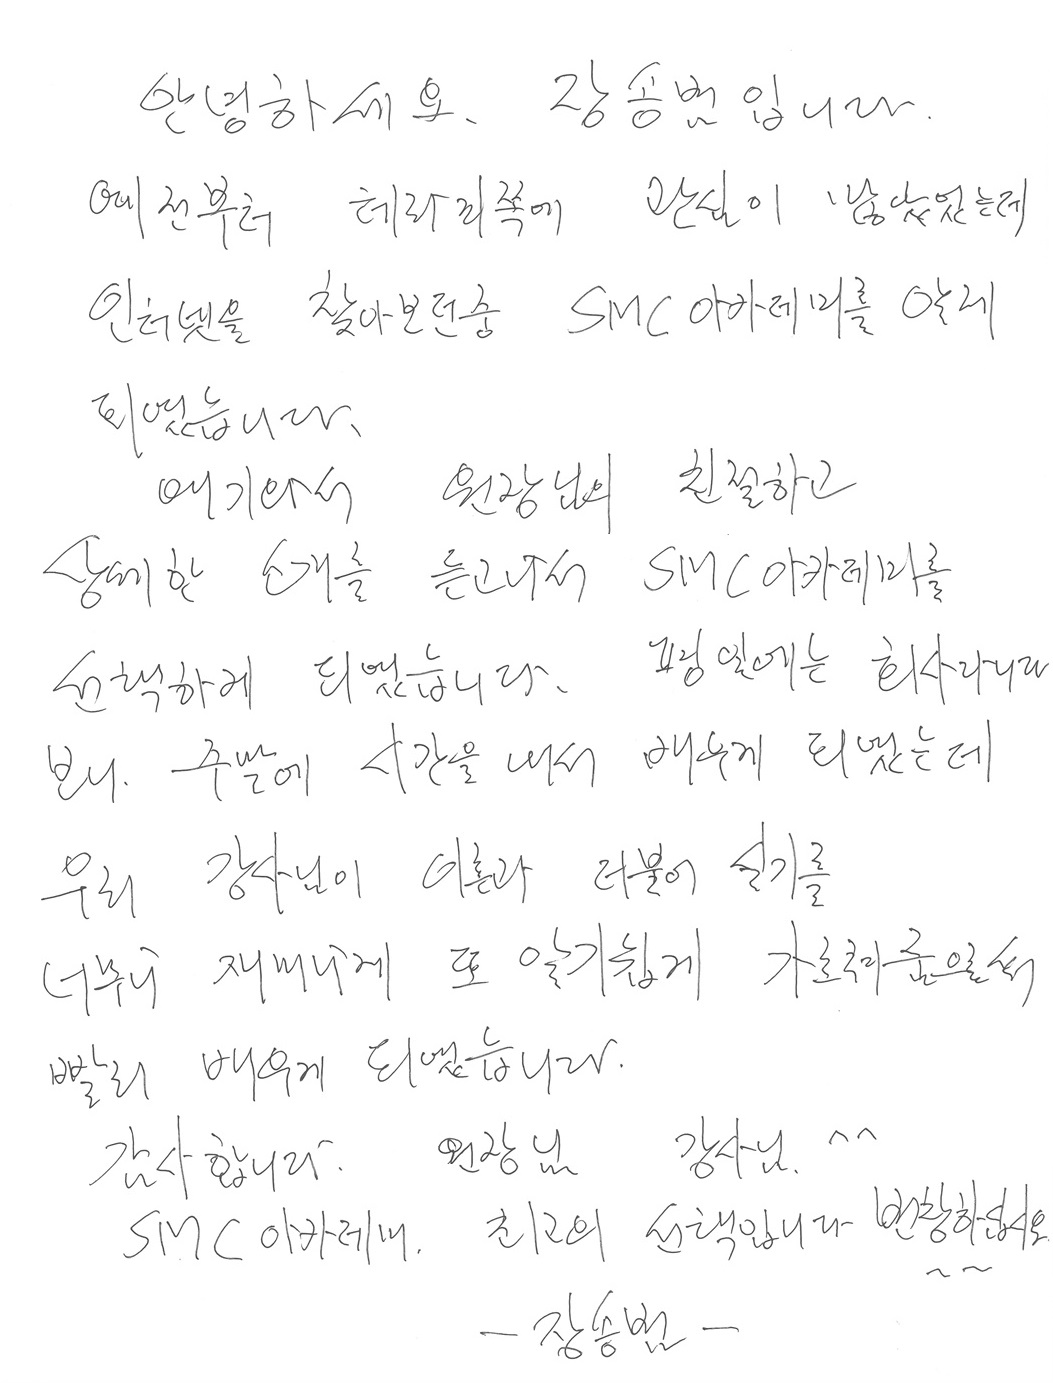 안녕하세요. 장송범입니다.
예전부터 테라피쪽에 관심이 많았었는데
인터넷을 찾아보던중 SMC아카데미를 알게
되었습니다.
여기와서 원장님의 친절하고
상세한 소개를 듣고나서 SMC아카데미를
선택하게 되었습니다. 평일에는 회사다니다
보니. 주말에 시간을 내서 배우게 되었는데
우리 강사님이 이론과 더불어 실기를
너무나 재미나게 또 알기쉽게 가르쳐줌으로써
빨리 배우게 되었습니다.
감사합니다. 원장님 강사님. ^^
SMC아카데미. 최고의 선택입니다 번창하십시오
~~
- 장송범 -